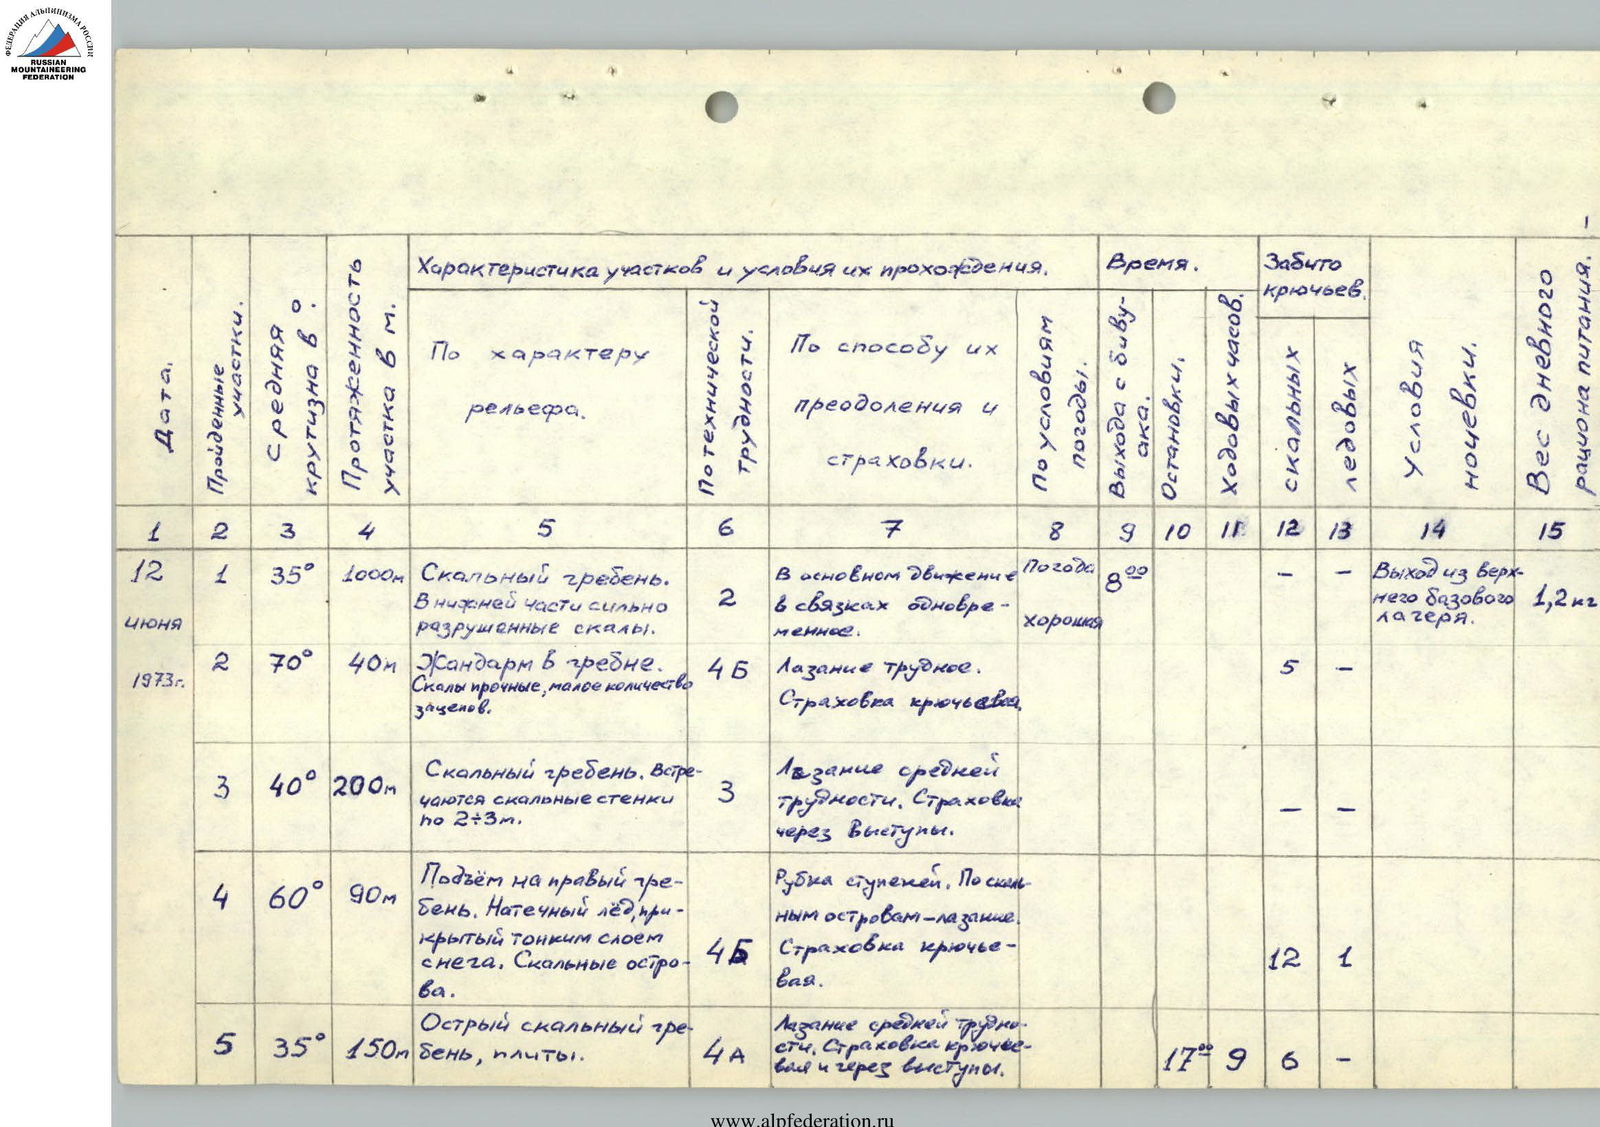 ФЕДЕРАЦИЯ АЛЬПИНИЗМА РОССИИ
RUSSIAN
MOUNTAINEERING
FEDERATION
Дата.
Пройденные
участки.
Средняя
крутизна в °.
Протяженность
участка в м.
Характеристика участков и условия их прохождения.
По характеру
рельефа.
По технической
трудности.
По способу их
преодоления и
страховки.
По условиям
погоды.
Время.
Выхода с биву-
ака.
Остановки.
Ходовых часов.
Забито
крючьев.
скальных
ледовых
Условия
ночевки.
Вес дневного
рациона питания.
1 2 3 4 5 6 7 8 9 10 11 12 13 14 15
12
июня
1973г.
1 35° 1000м
Скальный гребень.
В нижней части сильно
разрушенные скалы.
2
В основном движение
в связках одновре-
менное.
Погода
хорошая
8⁰⁰
– –
Выход из верх-
него базового
лагеря.
1,2кг
2 70° 40м
Жандарм в гребне.
Скалы прочные, малое количество
зацепов.
4Б
Лазание трудное.
Страховка крючьевая.
5 –
3 40° 200м
Скальный гребень. Встре-
чаются скальные стенки
по 2÷3м.
3
Лазание средней
трудности. Страховка
через выступы.
– –
4 60° 90м
Подъём на правый гре-
бень. Натечный лёд, при-
крытый тонким слоем
снега. Скальные остро-
ва.
4Б
Рубка ступеней. По скаль-
ным островам – лазание.
Страховка крючье-
вая.
12 1
5 35° 150м
Острый скальный гре-
бень, плиты.
4А
Лазание средней трудно-
сти. Страховка крючье-
вая и через выступы.
17⁰⁰ 9 6 –
www.alpfederation.ru